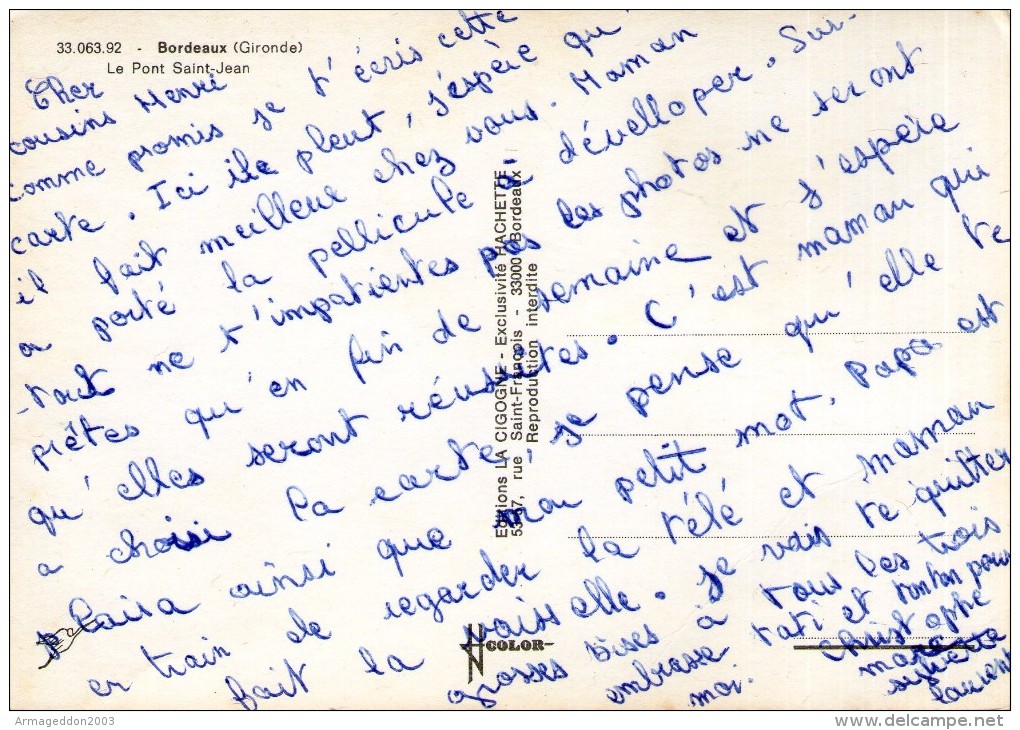 33.063.92 - Bordeaux (Gironde)
Le Pont Saint-Jean
Cher
cousins Henri
comme promis je t'écris cette
carte. Ici il pleut, j'espère qu'
il fait meilleur chez vous. Maman
a porté la pellicule à développer. Sur-
tout ne t'impatientes pas les photos ne seront
piêtes qu'en fin de semaine et j'espère
qu'elles seront réussites. C'est maman qui
a choisi la carte, je pense qu'elle te
plaira ainsi que mon petit mot. Papa est
en train de regarder la télé et maman
fait la vaisselle. Je vais te quitter
grosses bises à tous les trois
embrasse tati et tonton pour
moi.
Christophe
laurent
Editions LA CIGOGNE - Exclusivité HACHETTE
53-57, rue Saint-François - 33000 Bordeaux
Reproduction interdite
COLOR
Armageddon2003
www.delcampe.net